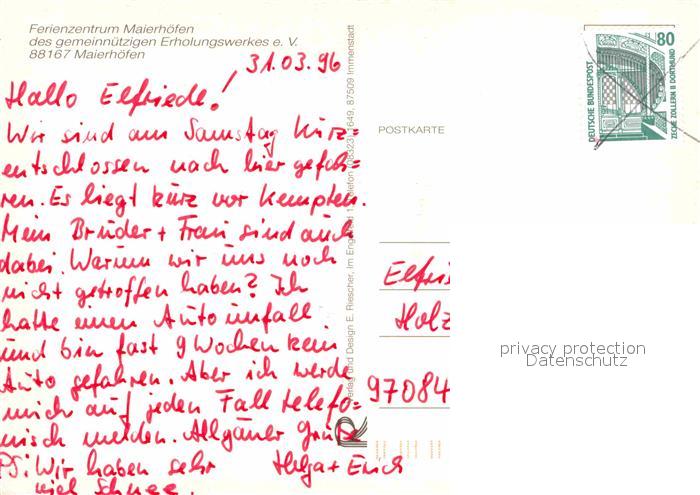 Ferienzentrum Maierhöfen
des gemeinnützigen Erholungswerkes e. V.
88167 Maierhöfen
31.03.96
Hallo Elfriede!
Wir sind am Samstag kurz=
entschlossen nach hier gefah=
ren. Es liegt kurz vor Kempten.
Mein Bruder + Frau sind auch
dabei. Warum wir uns noch
nicht getroffen haben? Ich
hatte einen Autounfall
und bin fast 9 Wochen kein
Auto gefahren. Aber ich werde
mich auf jeden Fall telefo=
nisch melden. Allgäuer Grüße
Helga + Erich
PS: Wir haben sehr
viel Schnee.
Verlag und Design E. Riescher, Im Engelfeld 1, Telefon 08323/649, 87509 Immenstadt
POSTKARTE
80
DEUTSCHE BUNDESPOST
ZECHE ZOLLERN II DORTMUND
Elfri
Holz
97084
privacy protection
Datenschutz